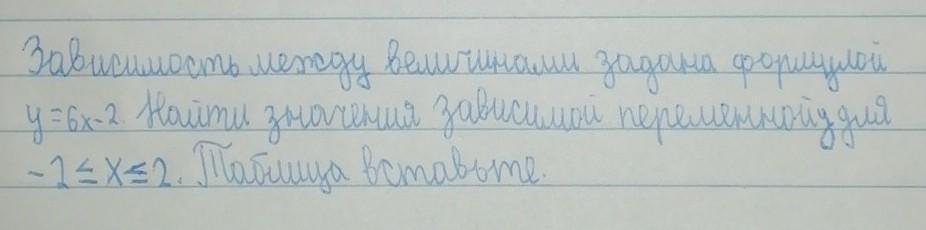 Зависимость между величинами задана формулой
y=6x-2. Найти значения зависимой переменной y для
-2≤x≤2. Таблица вставьте.